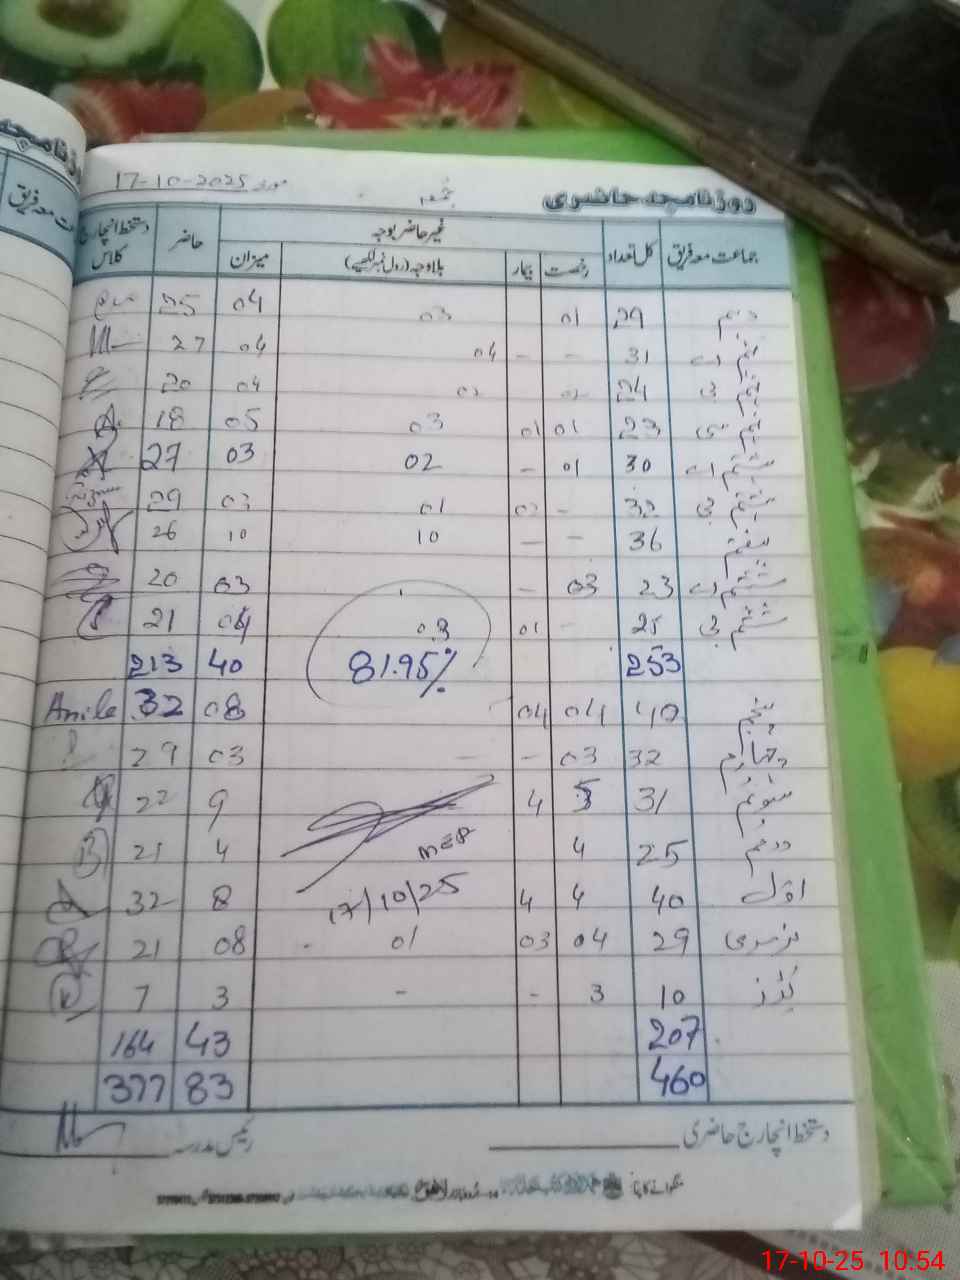 روزنامچہ حاضری جمعہ مورخہ 17-10-2025
جماعت معہ فریق کل تعداد غیر حاضر بوجہ حاضر دستخط انچارج کلاس
رخصت بیمار بلاوجہ (رول نمبر لکھیے) میزان
دہم 29 01 03 04 25
نہم اے 31 - - 04 04 27
نہم بی 24 04 20
نہم سی 23 01 01 03 05 18
ہشتم اے 30 01 - 02 03 27
ہشتم بی 32 - 02 01 03 29
ہفتم 36 - - 10 10 26
ششم اے 23 03 - 03 20
ششم بی 25 - 01 03 04 21
253 81.95% 40 213
پنجم 40 04 04 08 32 Anila
چہارم 32 03 - - 03 29
سوئم 31 5 4 9 22
دوئم 25 4 4 21
اول 40 4 4 8 32
17/10/25
نرسری 29 04 03 01 08 21
کڈز 10 3 - - 3 7
207 43 164
460 83 377
دستخط انچارج حاضری رئیس مدرسہ
17-10-25 10:54